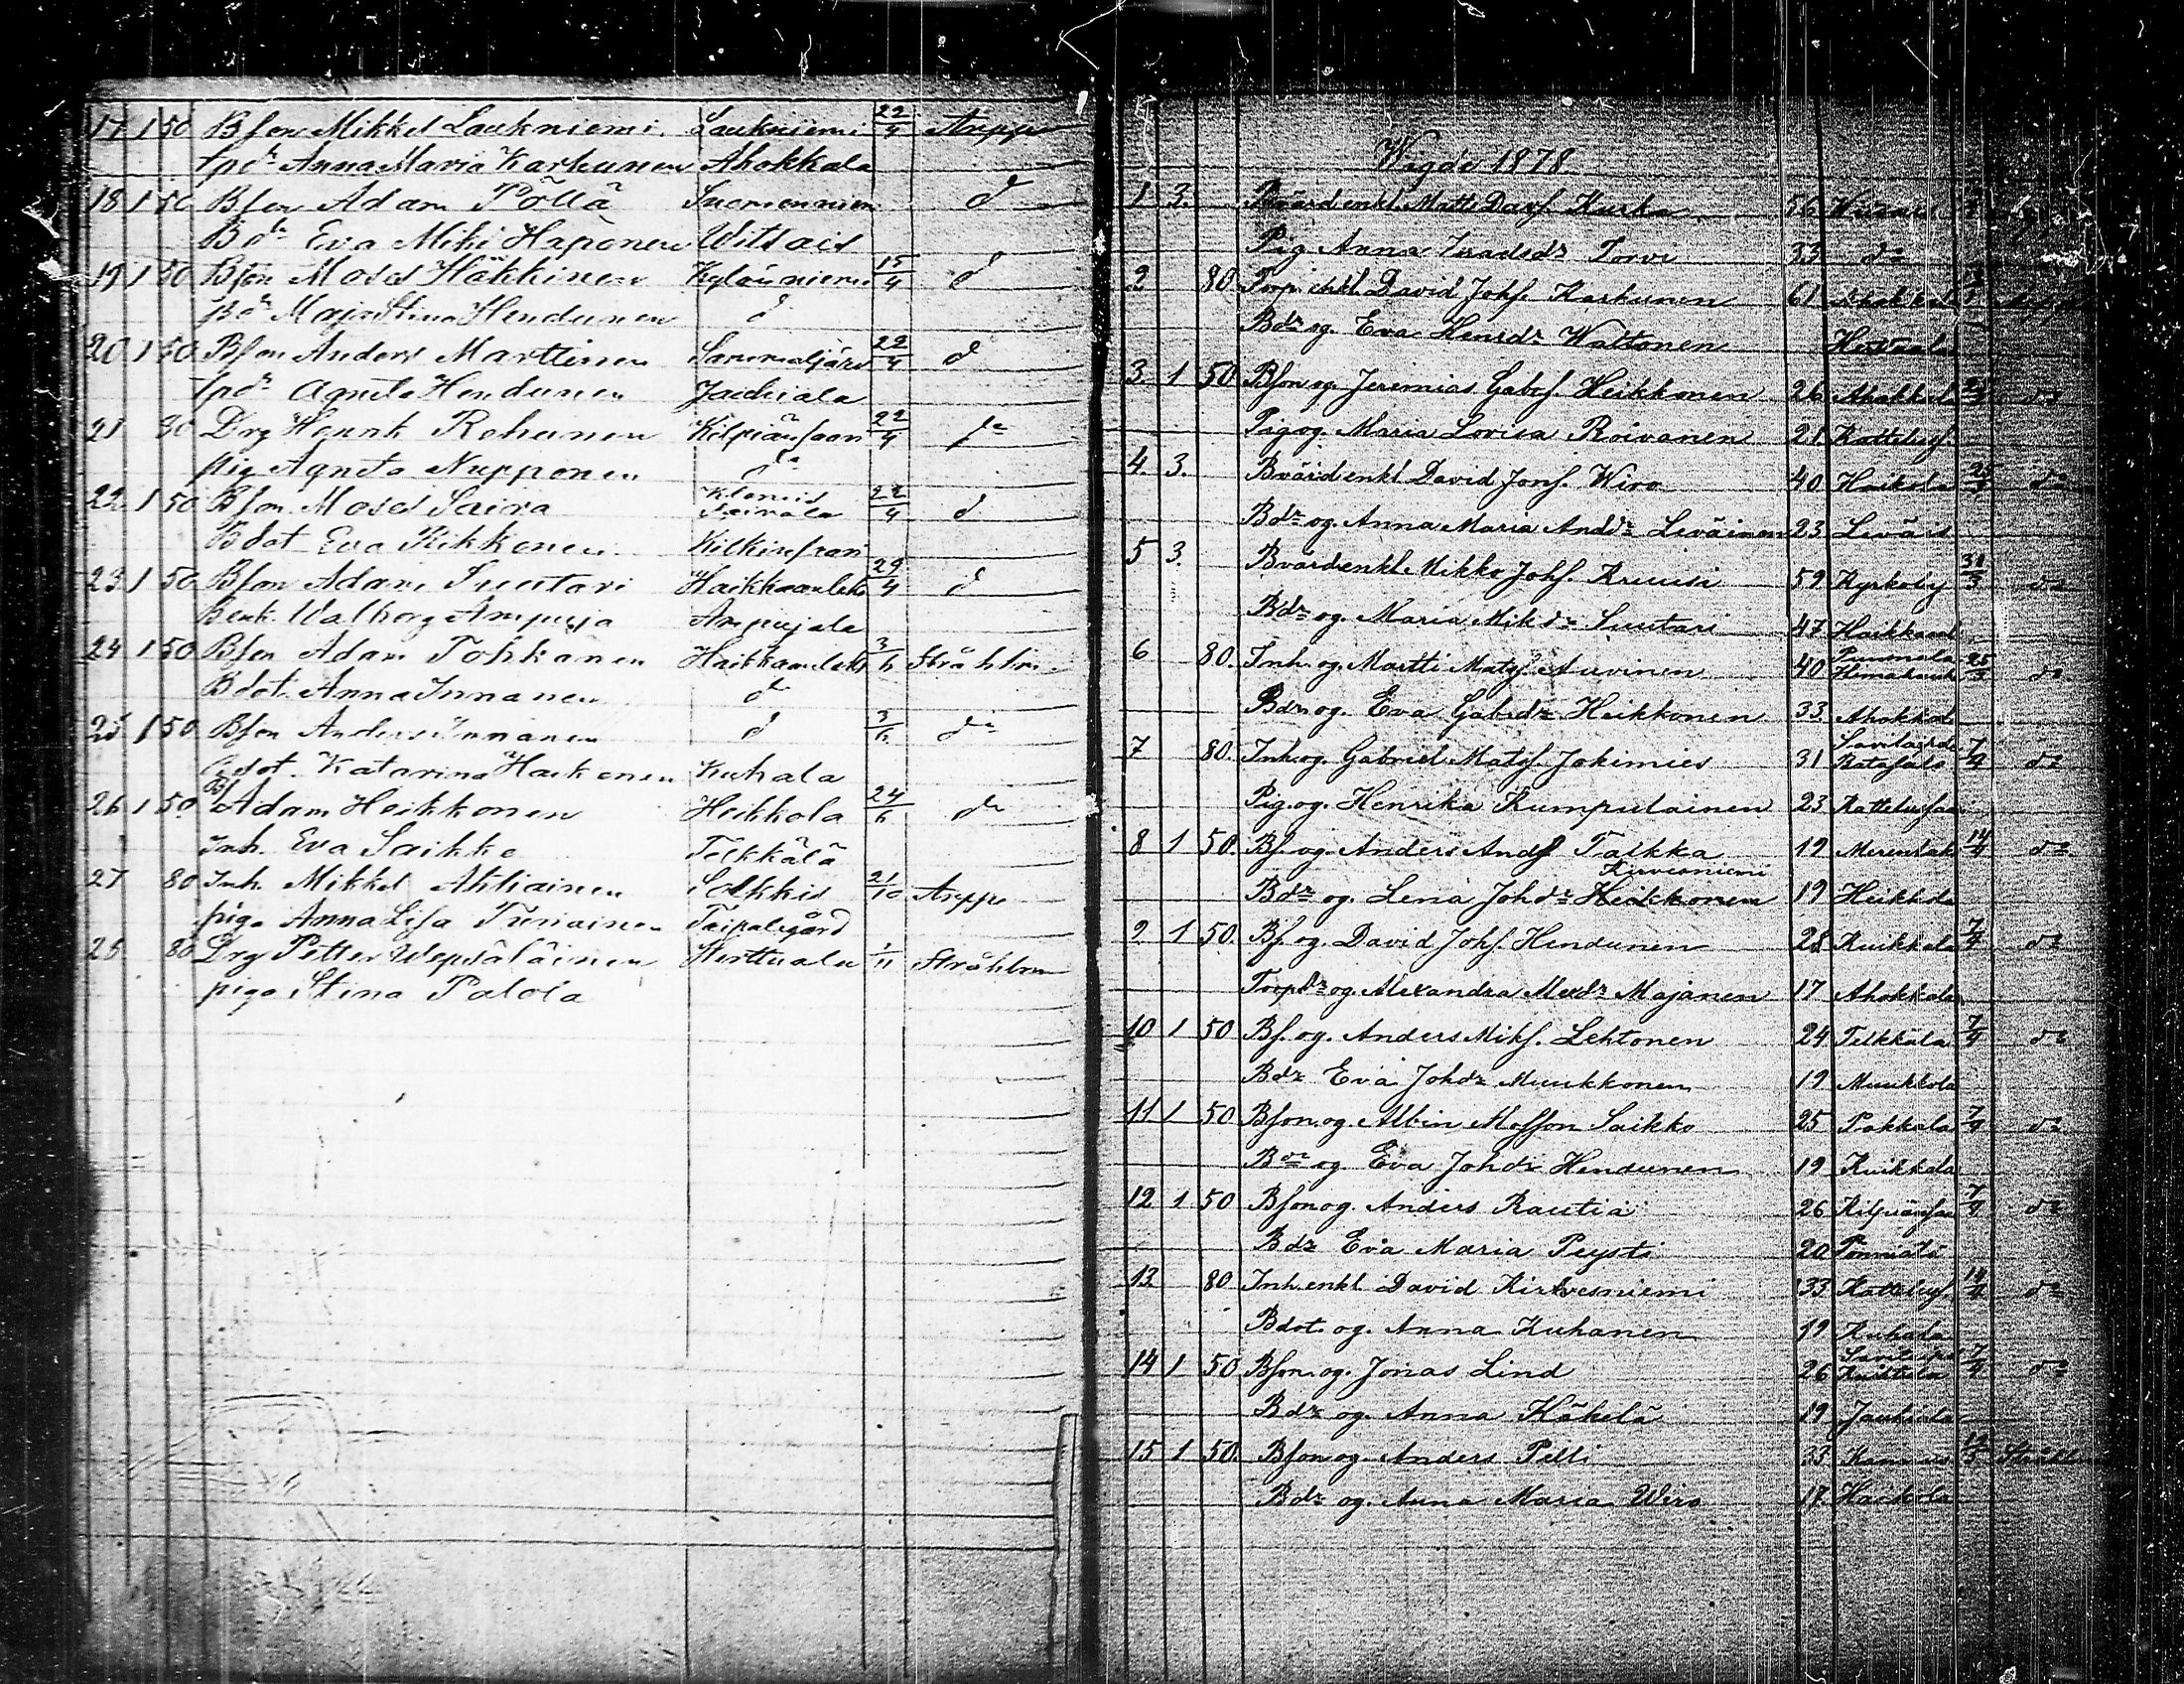 17 1 50 Bson Mikkel Laukniemi Laukniemi 22/4 Areppe
tpdr Anna Maria Karhunen Ahokkala
18 1 50 Bson Adam Pöllä Suomenniem d
Bdr Eva Miki Haponen Witsais
19 1 50 Bson Moses Häkkinen Kyläniemi 15/4 d
Bdr Maja Stina Hendunen d
20 1 50 Bson Anders Marttinen Sarumaljärv 22/4 d
tpdr Agneta Hendunen Jauhiala
21 80 Drg Henrik Rehunen Kilpiänsaari 22/4 do
pig Agneta Nupponen do
22 1 50 Bson Moses Saira 22/4 d
Bdot Eva Rikkonen
23 1 50 Bson Adam Suutari Haikkaanlaht 29/4 d
Benk. Walborg Ampuja Ampujala
24 1 50 Bson Adam Tohkanen Haikkaanlaht 3/6 Ståhlm
Bdot Anna Innanen do
25 1 50 Bson Anders Innanen d 3/6 do
Bdot. Katarina Haikonen Kuhala
26 1 50 Bs Adam Heikkonen Heikkola 24/6 do
Inh. Eva Saikko Telkkälä
27 80 Inh. Mikkel Ahtiainen Solkkis 21/10 Areppe
piga Anna Lisa Turiainen Taipalegård
28 80 Drg Petter Wepsäläinen Herttuala 1/11 Ståhlm
piga Stina Palola
Wigde 1878
1 3. Bvärd enkl. Matts Davs. Kurka 56
Pig Anna Isaksdr Torvi 33 do
2 80. Torp. enkl. David Johs. Karhunen 61 Ahokkal
Bdr og. Eva Henrdr Waltonen Herttuala
3. 1 50. Bson og. Jeremias Gabrs. Heikkonen 26 Ahokkala do
Pig og. Maria Lovisa Roivanen 21. Kattelus.
4. 3. Bvärd enkl David Jons. Wiro 40 Haikola 25/3 do
Bdr og. Anna Maria Anddr Leväinen 23 Leväis
5 3. Bvärd enkl. Mikko Johs. Kruusi 59 Kyrkoby 31/3 do
Bdr og. Maria Mikdr Suutari 47 Haikkaal
6 80. Inh og. Martti Mats. Auvinen 40 Pummala 25/3 do
Bdr og. Eva Gabrdr Heikkonen 33. Ahokkala
7 80. Inh og. Gabriel Mats. Jokimies 31 7/4 do
Pig og. Henrika Kumpulainen 23 Kattelussaa
8 1 50. Bs. og. Anders Ands. Talkka 19 Merenlaht 14/4 do
Kirvesniemi
Bdr og. Lena Johdr Heikkonen 19 Heikkola
9. 1 50. Bs. og. David Johs. Hendunen 28 Kuikkala 7/4 do
Torpdr og. Alexandra Alexdr Majanen 17 Ahokkala
10 1 50 Bs. og. Anders Miks. Lehtonen 24 Telkkälä 7/4 do
Bdr Eva Johdr Muukkonen 19 Muukkola
11 1 50 Bson og. Albin Mosson Saikko 25 Pakkala 7/4 do
Bdr og Eva Johdr Hendunen 19 Kuikkala
12 1 50 Bson og. Anders Rautia 26 Kilpiänsaa 7/4 do
Bdr Eva Maria Peysti 20 Pönniälä
13 80 Inh. enkl. David Kirvesniemi 33 Kattelus. 14/4 do
Bdot. og. Anna Kuhanen 19 Kuhala
14 1 50 Bson og. Jonas Lind 26 7/4 do
Bdr og. Anna Käkelä 19 Jauhiala
15 1 50. Bson og. Anders Pelli 33 Ståhl
Bdr og. Anna Maria Wiro 17. Haikola